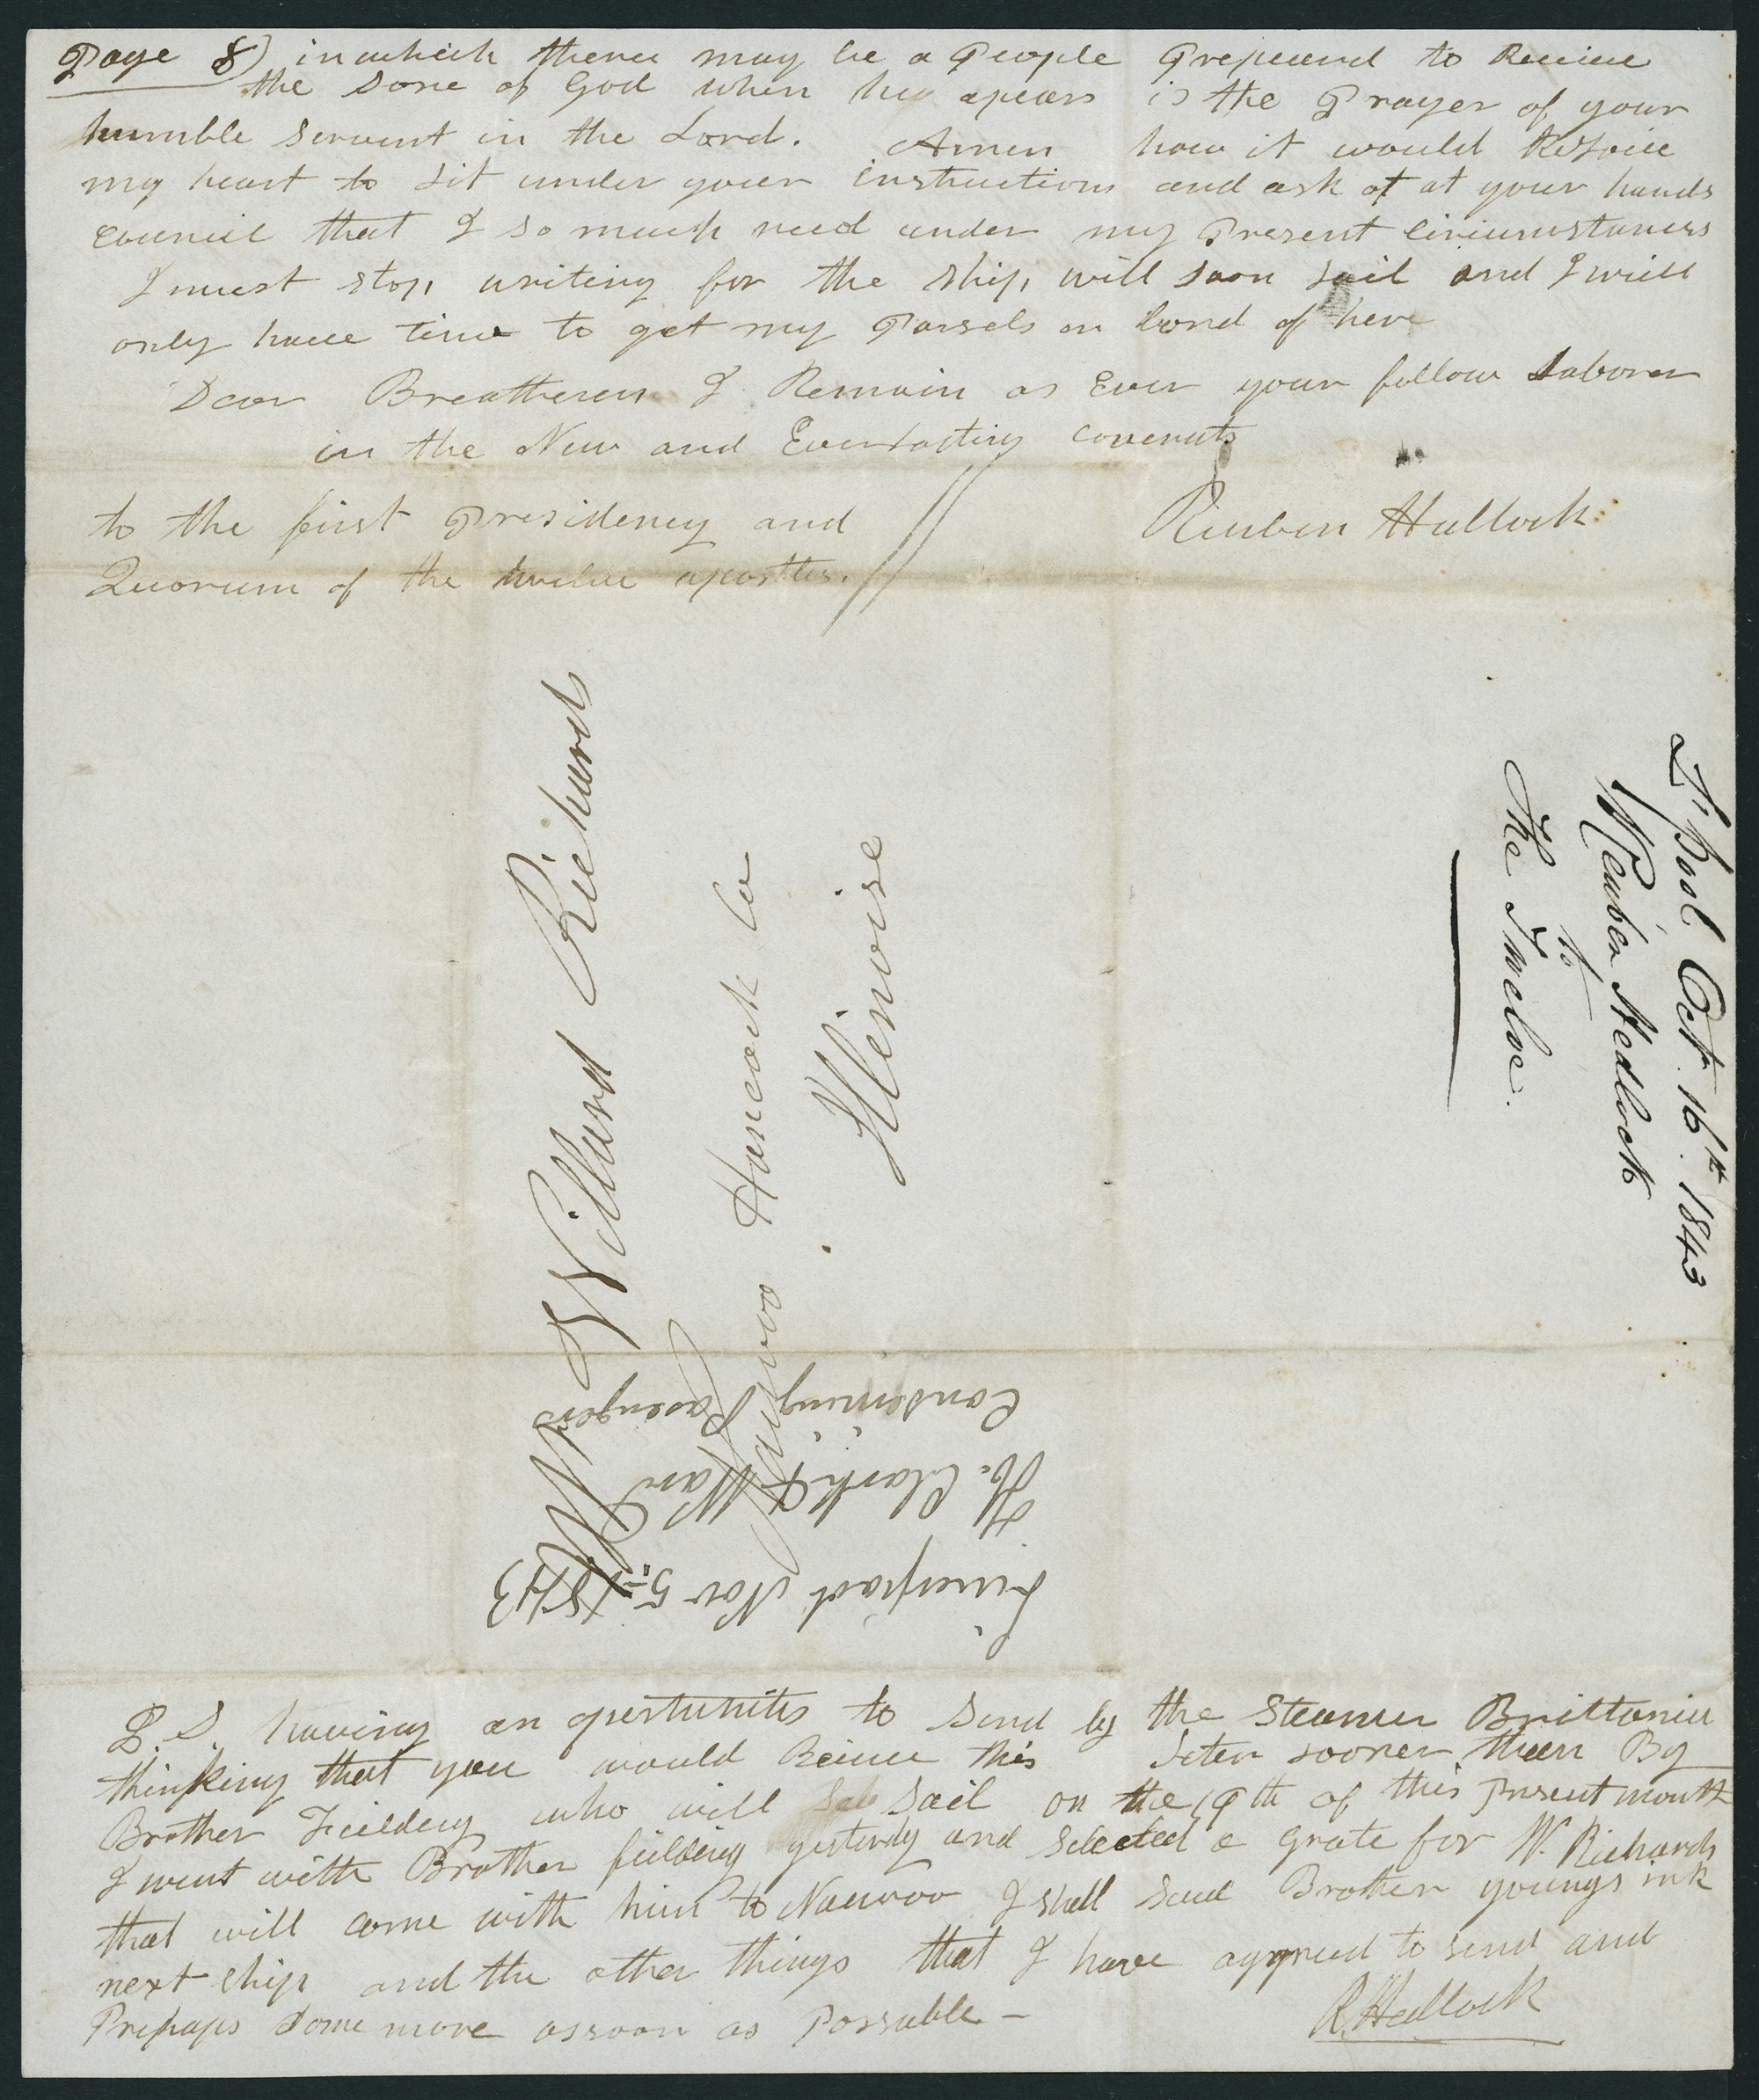 Page 8) in which there may be a People Prepared to Receive
the Sone of God when he apears is the Prayer of your
humble Servent in the Lord. Amen how it would Rejoice
my heart to Sit under your instructions and ask at at your hands
council that I so much need under my Present Circumstances
I must stop, writing for the ship, will soon Sail and I will
only have time to get my Parsels on bord of her
Dear Breatheren I Remain as Ever your fellow Laborer
in the New and Everlasting covenets
Reuben Hedlock
to the first Presidency and
Quorum of the twelve apostles.
Willard Richards
Nauvoo Hancock Co
Illenoise
L'pool Oct. 16th 1843
Reuben Hedlock
to
The Twelve.
Liverpool Nov 5= 1843
H. Clark & Ward
Conserning Pasengers
P.S. having an opertunites to Send by the Steamer Brittania
thinking that you would Receive this leter sooner than By
Brother Fielding who will Sail on the 19th of this Present month
I went with Brother fielding yesterdy and Selected a grate for W. Richards
that will come with him to Nauvoo I shall Send Brother youngs ink
next ship and the other things that I have aggreed to send and
Prehaps Some more assoon as Possable —
R Hedlock